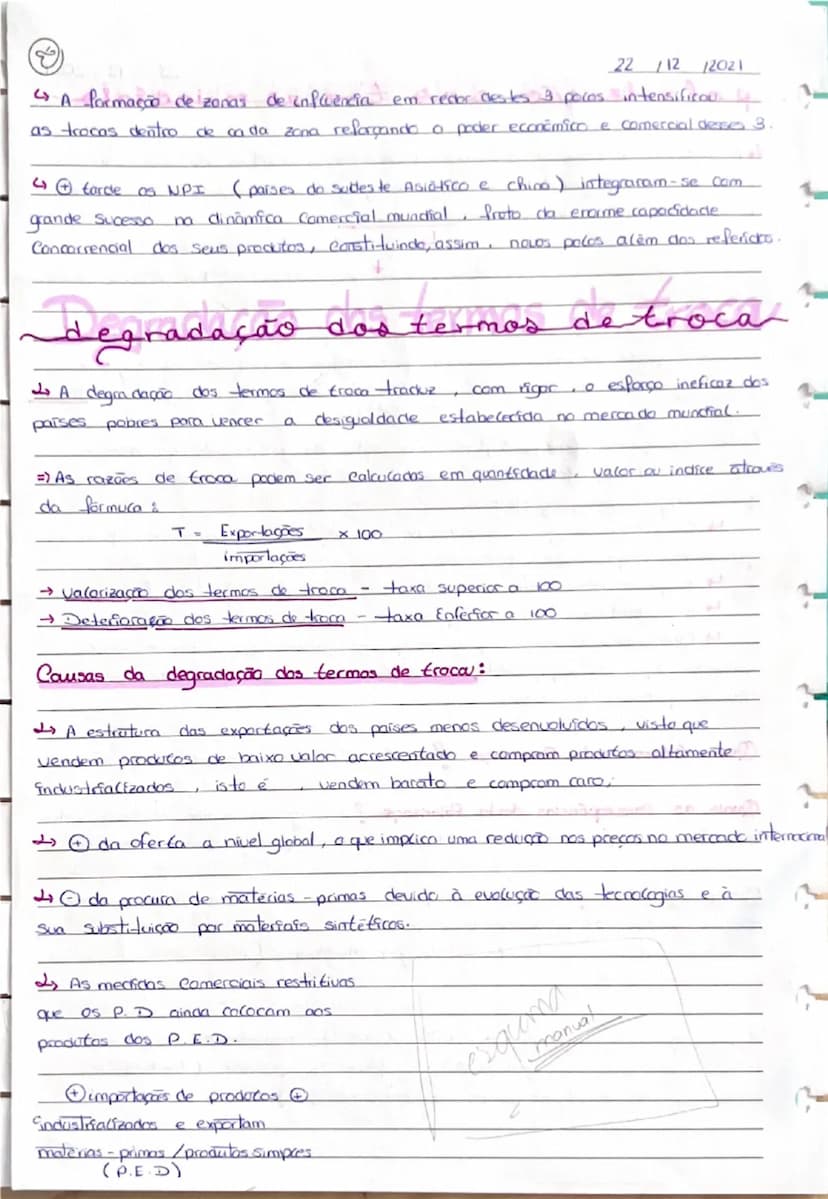 22 / 12 / 2021
↳ A formação de zonas de influência em redor destes 3 polos intensificou
as trocas dentro de cada zona reforçando o poder económico e comercial desses 3.
↳ ⊕ tarde os NPI (países do sudeste Asiático e China) integraram-se com
grande sucesso na dinâmica comercial mundial, fruto da enorme capacidade
Concorrencial dos seus produtos, constituindo, assim, novos polos além dos referidos.
Degradação dos termos de troca
↳ A degradação dos termos de troca traduz, com rigor, o esforço ineficaz dos
países pobres para vencer a desigualdade estabelecida no mercado mundial.
=) As razões de troca podem ser calculadas em quantidade, valor ou indice através
da fórmula:
T = Exportações x 100
importações
→ Valorização dos termos de troca - taxa superior a 100
→ Deterioração dos termos de troca - taxa Inferior a 100
Causas da degradação dos termos de troca:
↳ A estrutura das exportações dos países menos desenvolvidos, visto que
vendem produtos de baixo valor acrescentado e compram produtos altamente
industrializados, isto é, vendem barato e compram caro;
↳ ⊕ da oferta a nível global, o que implica uma redução nos preços no mercado internacional
↳ ⊖ da procura de matérias-primas devido à evolução das tecnologias e à
sua substituição por materiais sintéticos.
↳ As medidas comerciais restritivas
que os P.D ainda colocam aos
produtos dos P.E.D.
esquema
manual
⊕ importações de produtos ⊕
industrializados e exportam
matérias-primas / produtos simples
(P.E.D)